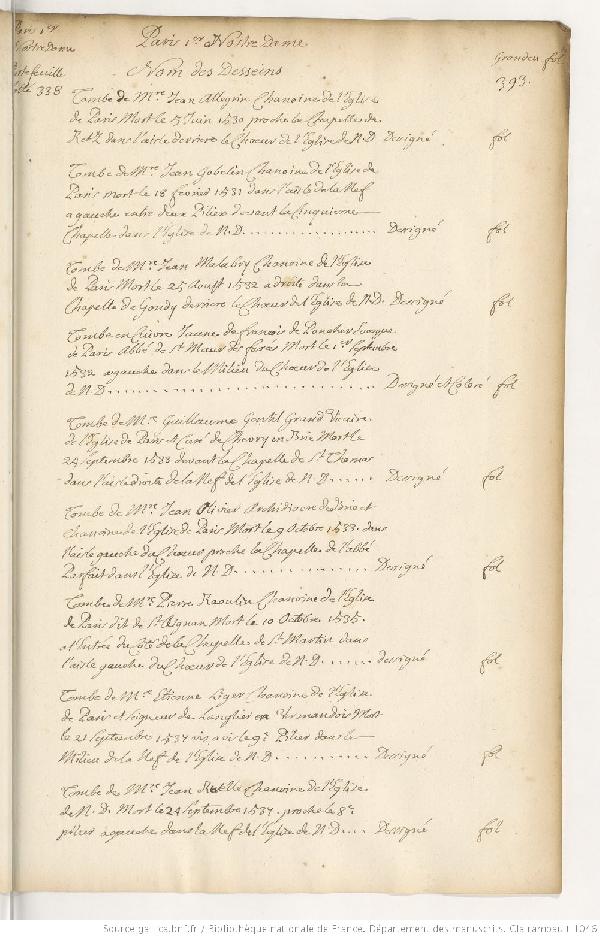 Paris 1er
Nostre Dame
Portefeuille
cotté 338
Paris 1er Nostre Dame
Nom des Desseins
Grandeu fol
393.
Tombe de Mre Jean Allegrin Chanoine de l'Eglise
de Paris Mort le 5 Juin 1530 proche la Chapelle de
Retz dans l'aisle derriere le Chœur de l'Eglise de N.D Dessigné fol
Tombe de Mre Jean Gobelin Chanoine de l'Eglise de
Paris mort le 18 fevrier 1531 dans l'aisle de la Nef
a gauche entre deux Pilier devant la Cinquieme
Chapelle dans l'Eglise de N.D. ................ Dessigné fol
Tombe de Mre Jean Malabry Chanoine de l'Eglise
de Paris Mort le 25 Aoust 1532 a droite dans la
Chapelle de Gondy derriere le Chœur de l'Eglise de N.D. Dessigné fol
Tombe en Cuivre Jaune de françois de Poncher Evesque
de Paris Abbé de St Maur des fossés Mort le 1er Septembre
1532 a gauche dans le Milieu du Chœur de l'Eglise
de N.D. ................ Dessigné et Coloré fol
Tombe de Mre Guillaume Gentil Grand Vicaire
de l'Eglise de Paris et Curé de Chevry en Brie Mort le
24 Septembre 1533 devant la Chapelle de St Thomas
dans l'aisle droite de la Nef de l'Eglise de N.D. ..... Dessigné fol
Tombe de Mre Jean Olivier Archidiacre de
Chanoine de l'Eglise de Paris Mort le 9 Octobre 1533. dans
l'aisle gauche du Chœur proche la Chapelle de l'abbé
Parfait dans l'Eglise de N.D. ............ Dessigné fol
Tombe de Mre Pierre Raoulin Chanoine de l'Eglise
de Paris dit de St Aignan Mort le 10 Octobre 1535.
a l'Entrée du Coté de la Chapelle de St Martin dans
l'aisle gauche du Chœur de l'Eglise de N.D. ...... dessigné fol
Tombe de Mre Etienne Leger Chanoine de l'Eglise
de Paris et seigneur de en Vermandois Mort
le 21 Septembre 1537 vis a vis le 9e Pilier dans le
Milieu de la Nef de l'Eglise de N.D ............ Dessigné fol
Tombe de Mre Jean Chanoine de l'Eglise
de N.D. Mort le 24 Septembre 1537. proche le 8e
pilier a gauche dans la Nef de l'Eglise de N.D.... Dessigné fol
Source gallica.bnf.fr / Bibliothèque nationale de France. Département des manuscrits. Clairambault 1046